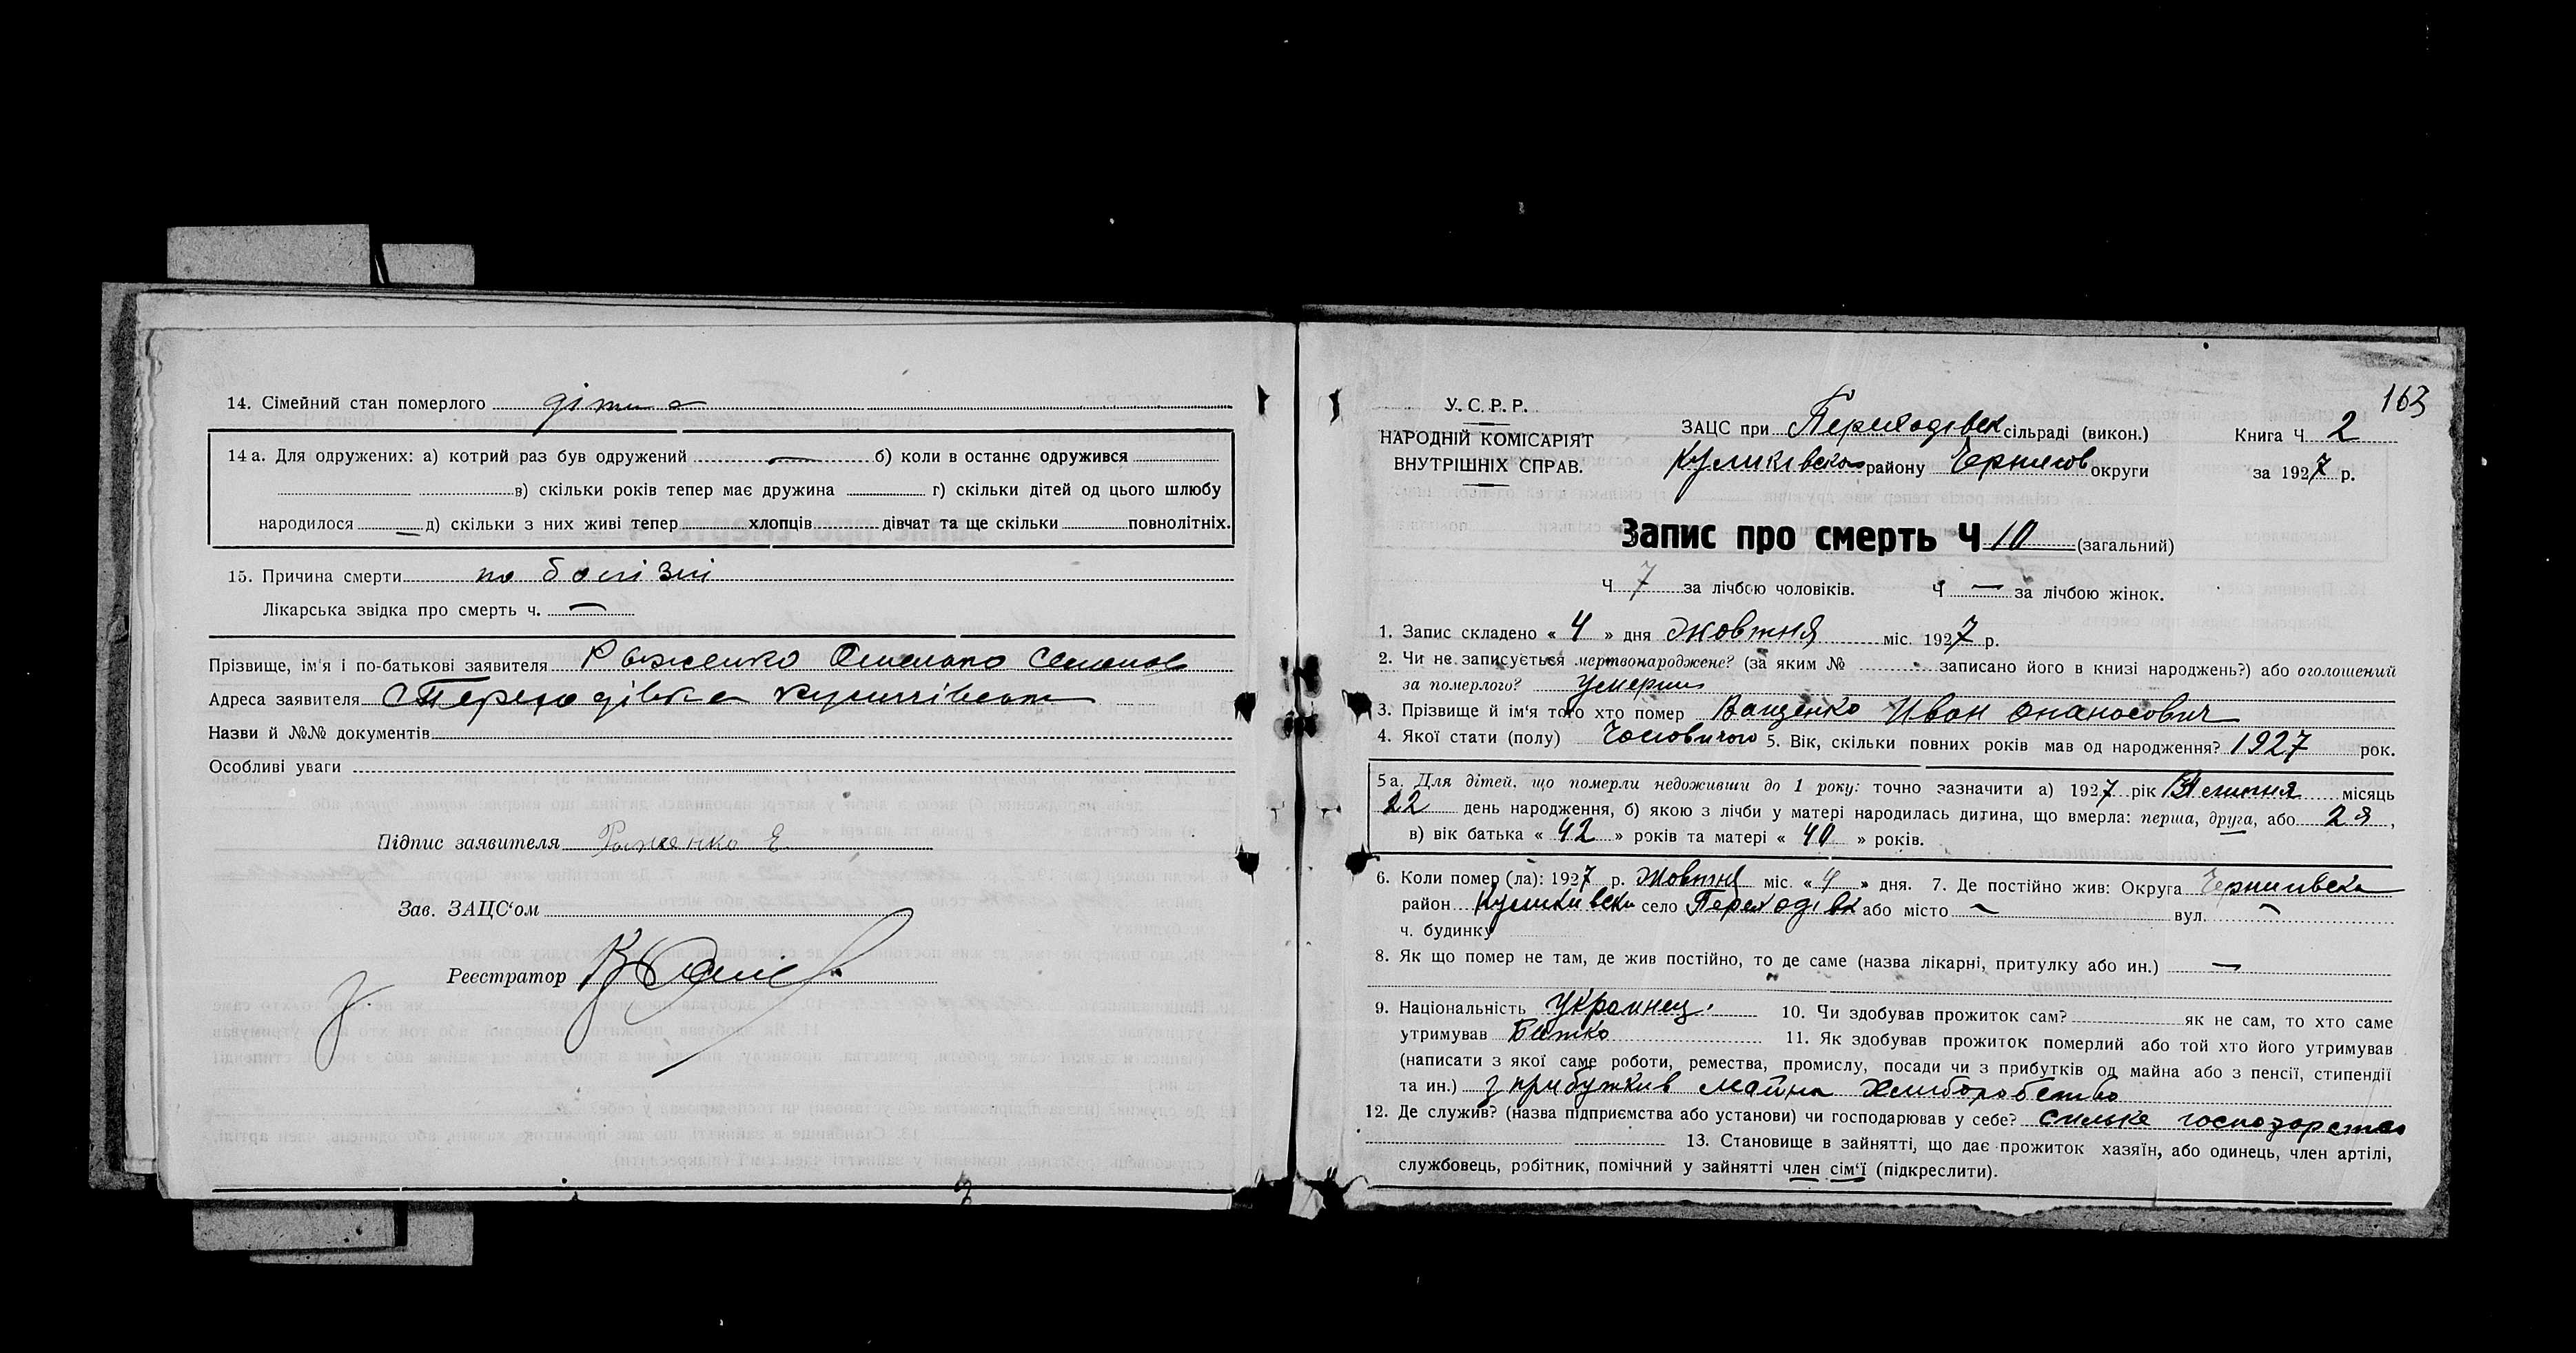 14. Сімейний стан померлого дитина
14 а. Для одружених: а) котрий раз був одружений — б) коли в останнє одружився
в) скільки років тепер має дружина г) скільки дітей од цього шлюбу
народилося — д) скільки з них живі тепер хлопців дівчат та ще скільки повнолітніх.
15. Причина смерти по болізні
Лікарська звідка про смерть ч. —
Прізвище, ім'я і по-батькові заявителя
Адреса заявителя с Переходівка
Назви й №№ документів
Особливі уваги
Підпис заявителя
Зав. ЗАЦС'ом
Реєстратор
163
У. С. Р. Р.
НАРОДНІЙ КОМІСАРІЯТ
ВНУТРІШНІХ СПРАВ.
ЗАЦС при Переходівск сільраді (викон.)
Куликівсько району Чернигов округи
Книга Ч 2
за 1927 р.
Запис про смерть Ч 10 (загальний)
Ч 7 за лічбою чоловіків. Ч — за лічбою жінок.
1. Запис складено « 4 » дня Жовтня міс. 1927 р.
2. Чи не записується мертвонароджене? (за яким № записано його в книзі народжень?) або оголошений
за померлого? умерши
3. Прізвище й ім'я того хто помер Ващенко Иван Опанасович
4. Якої стати (полу) Чоловичого 5. Вік, скільки повних років мав од народження? 1927 рок.
5 а. Для дітей, що померли недоживши до 1 року: точно зазначити а) 1927 рік місяць
22 день народження, б) якою з лічби у матері народилась дитина, що вмерла: перша, друга, або 2я,
в) вік батька « 42 » років та матері « 40 » років.
6. Коли помер (ла): 1927 р. Жовтня міс. « 4 » дня. 7. Де постійно жив: Округа Чернигівска
район Куликівски село Переходівк або місто — вул. —
ч. будинку
8. Як що помер не там, де жив постійно, то де саме (назва лікарні, притулку або ин.) —
9. Національність Украинец. 10. Чи здобував прожиток сам? як не сам, то хто саме
утримував Батько 11. Як здобував прожиток померлий або той хто його утримував
(написати з якої саме роботи, ремества, промислу, посади чи з прибутків од майна або з пенсії, стипендії
та ин.) з прибутків майна Хлиборобство
12. Де служив? (назва підприємства або установи) чи господарював у себе? сильске господарство
13. Становище в зайнятті, що дає прожиток хазяїн, або одинець, член артілі,
службовець, робітник, помічний у зайнятті член сім'ї (підкреслити).